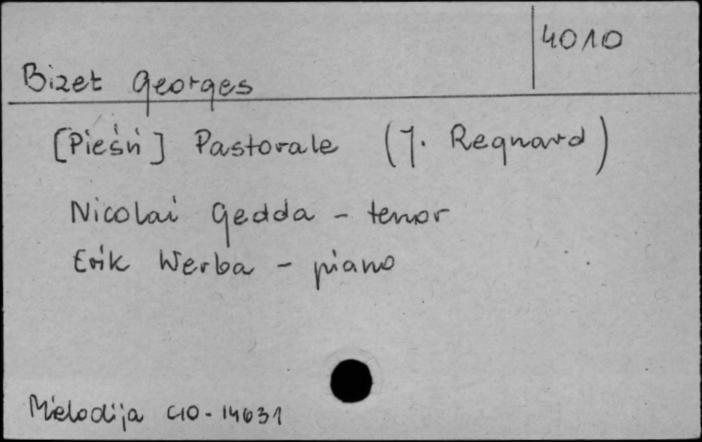 4010
Bizet Georges
[Pieśń] Pastorale (J. Regnard)
Nicolai Gedda - tenor
Erik Werba - piano
Mielodija C10-14631